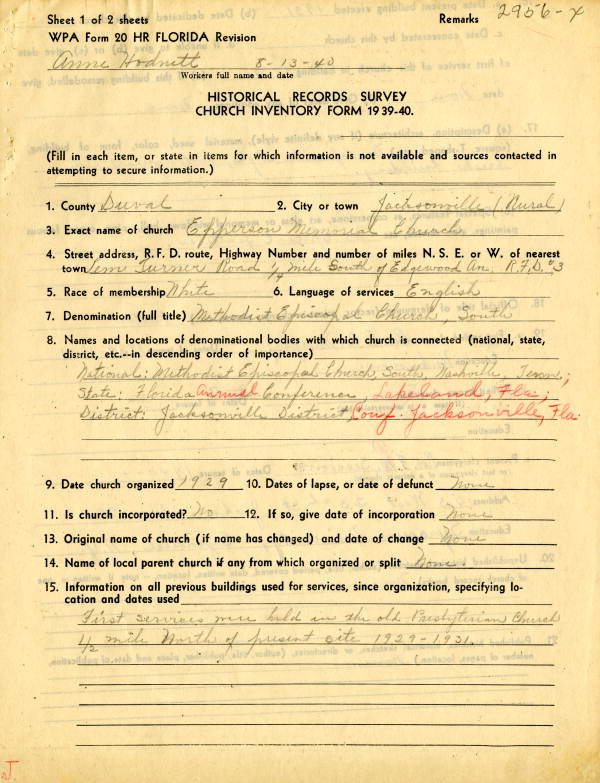 Sheet 1 of 2 sheets
Remarks 2956-X
WPA Form 20 HR FLORIDA Revision
Anne Hodnett 8-13-40
Workers full name and date
HISTORICAL RECORDS SURVEY
CHURCH INVENTORY FORM 1939-40.
(Fill in each item, or state in items for which information is not available and sources contacted in
attempting to secure information.)
1. County Duval 2. City or town Jacksonville (Rural)
3. Exact name of church Epperson Memorial Church
4. Street address, R. F. D. route, Highway Number and number of miles N. S. E. or W. of nearest
town Lem Turner Road 1/4 mile South of Edgewood Av. R.F.D. #3
5. Race of membership White 6. Language of services English
7. Denomination (full title) Methodist Episcopal Church, South
8. Names and locations of denominational bodies with which church is connected (national, state,
district, etc.--in descending order of importance)
National: Methodist Episcopal Church, South, Nashville, Tenn;
State: Florida Annual Conference, Lakeland, Fla;
District: Jacksonville District, Conf. Jacksonville, Fla.
9. Date church organized 1929 10. Dates of lapse, or date of defunct None
11. Is church incorporated? No 12. If so, give date of incorporation None
13. Original name of church (if name has changed) and date of change None
14. Name of local parent church if any from which organized or split None.
15. Information on all previous buildings used for services, since organization, specifying lo-
cation and dates used
First services were held in the old Presbyterian Church
1/2 mile North of present site 1929-1931.